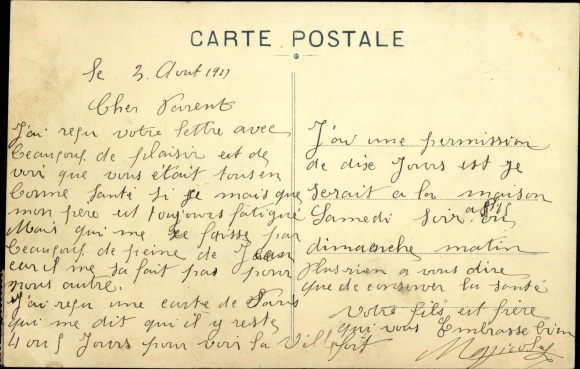 CARTE POSTALE
le 3. Aout 1911
Cher Parent
J'ai reçu votre lettre avec
beaucoup de plaisir est de
voir que vous était tous en
bonne Santé Si se mais que
mon père est toujours fatigué
Mais qui me se faisse pas
beaucoup de peine de
car il me sa fait pas pour
nous autre.
J'ai reçu une carte de Paris
qui me dit qu'il y reste
4 ou 5 Jours pour voir la Ville
J'ai une permission
de dix Jours est je
serait a la maison
Samedi Soir ou
dimanche matin
plus rien a vous dire
que de conserver la santé
Votre fils est frère
qui vous Embrasse bien
fort